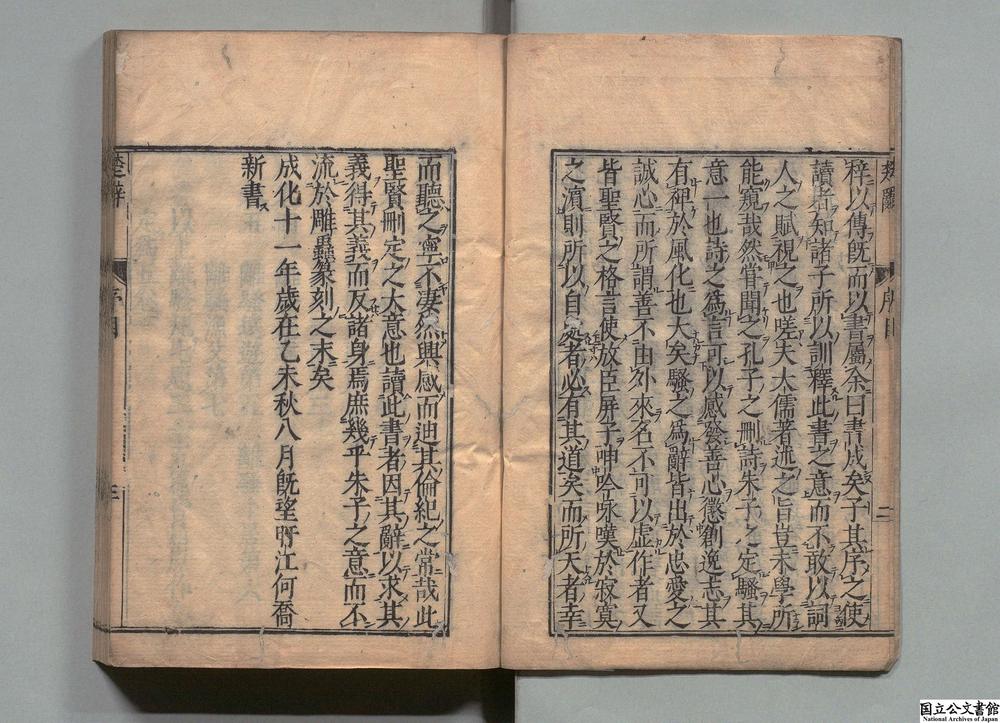 梓以傳既而以書屬余曰書成矣子其序之使
讀者知諸子所以訓釋此書之意而不敢以詞
人之賦視之也嗟夫大儒著述之旨豈末學所
能窺哉然甞聞之孔子之刪詩朱子之定騷其
意一也詩之爲言可以感發善心懲創逸志其
有裨於風化也大矣騷之爲辭皆出於忠愛之
誠心而所謂善不由外來名不可以虛作者又
皆聖賢之格言使放臣屏子呻吟咏嘆於寂寞
之濵則所以自處者必有其道矣而所天者幸
而聽之寧不凄然興感而迪其倫紀之常哉此
聖賢刪定之大意也讀此書者因其辭以求其
義得其義而反諸身焉庶幾乎朱子之意而不
流於雕蟲篆刻之末矣
成化十一年歲在乙未秋八月既望旴江何喬
新書
楚辭
序目
二
楚辭
序目
三
国立公文書館
National Archives of Japan